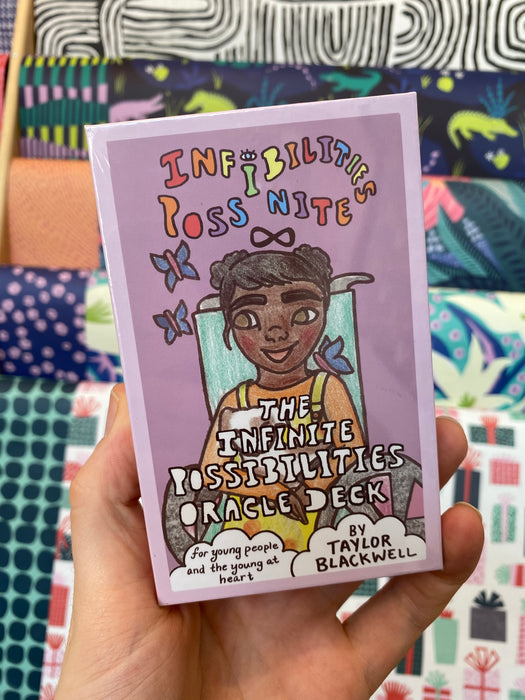 INFiBILITIES
POSS NITE
THE
INFINITE
POSSIBILITIES
ORACLE DECK
for young people
and the young at
heart
BY
TAYLOR
BLACKWELL